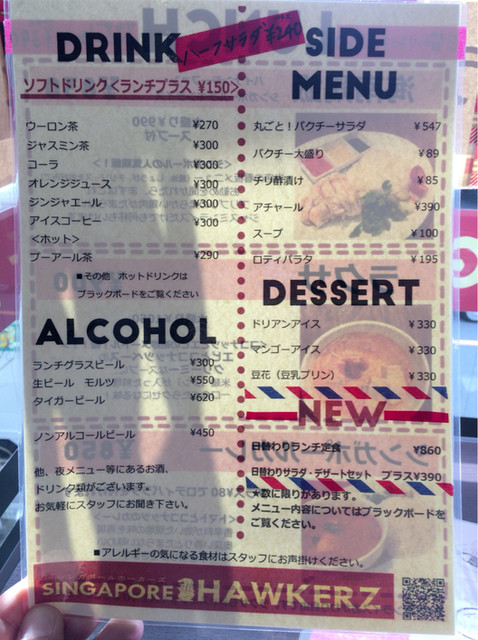 DRINK
ハーフサラダ ¥240
ソフトドリンク<ランチプラス ¥150>
ウーロン茶 ¥270
ジャスミン茶 ¥300
コーラ ¥300
オレンジジュース ¥300
ジンジャエール ¥300
アイスコーヒー ¥300
<ホット>
プーアール茶 ¥290
■その他 ホットドリンクは
ブラックボードをご覧ください
ALCOHOL
ランチグラスビール ¥300
生ビール モルツ ¥550
タイガービール ¥620
ノンアルコールビール ¥450
他、夜メニュー等にあるお酒、
ドリンク類がございます。
お気軽にスタッフにお聞き下さい。
SIDE
MENU
丸ごと!パクチーサラダ ¥547
パクチー大盛り ¥89
チリ酢漬け ¥85
アチャール ¥390
スープ ¥100
ロティパラタ ¥195
DESSERT
ドリアンアイス ¥330
マンゴーアイス ¥330
豆花(豆乳プリン) ¥330
NEW
日替わりランチ定食 ¥860
日替わりサラダ・デザートセット プラス¥390
★数に限りがあります。
メニュー内容についてはブラックボードを
ご覧ください。
■アレルギーの気になる食材はスタッフにお声掛けください。
シンガポールホーカーズ
SINGAPORE HAWKERZ